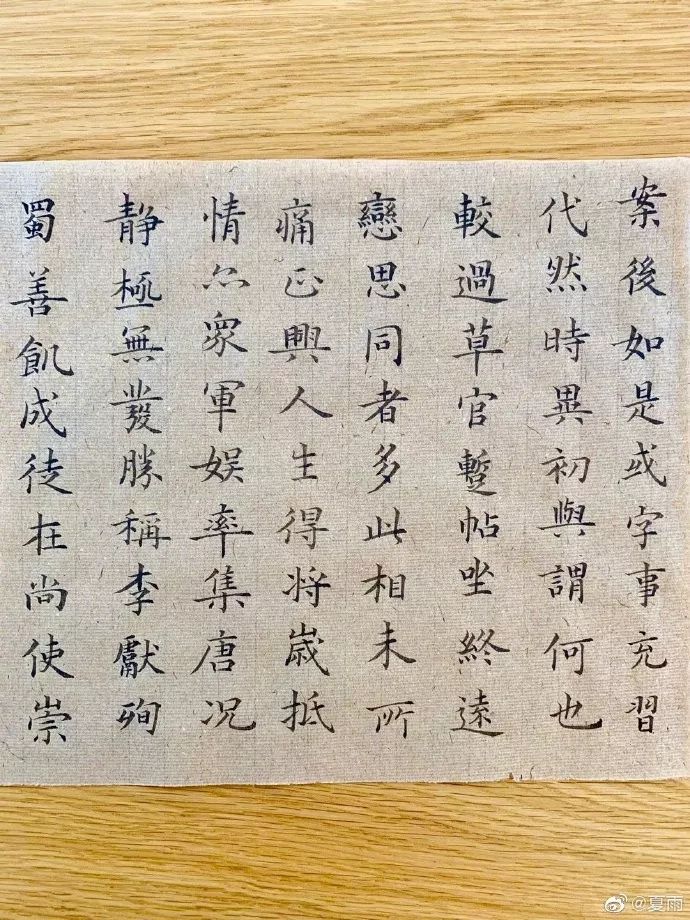 案後如是或字事充習
代然時異初與謂何也
較過草官蹔帖坐終遠
戀思同者多此相未所
痛正興人生得将歲抵
情尒衆軍娱率集唐况
静極無發勝稱李獻殉
蜀善飢成徒在尚使崇
@夏雨